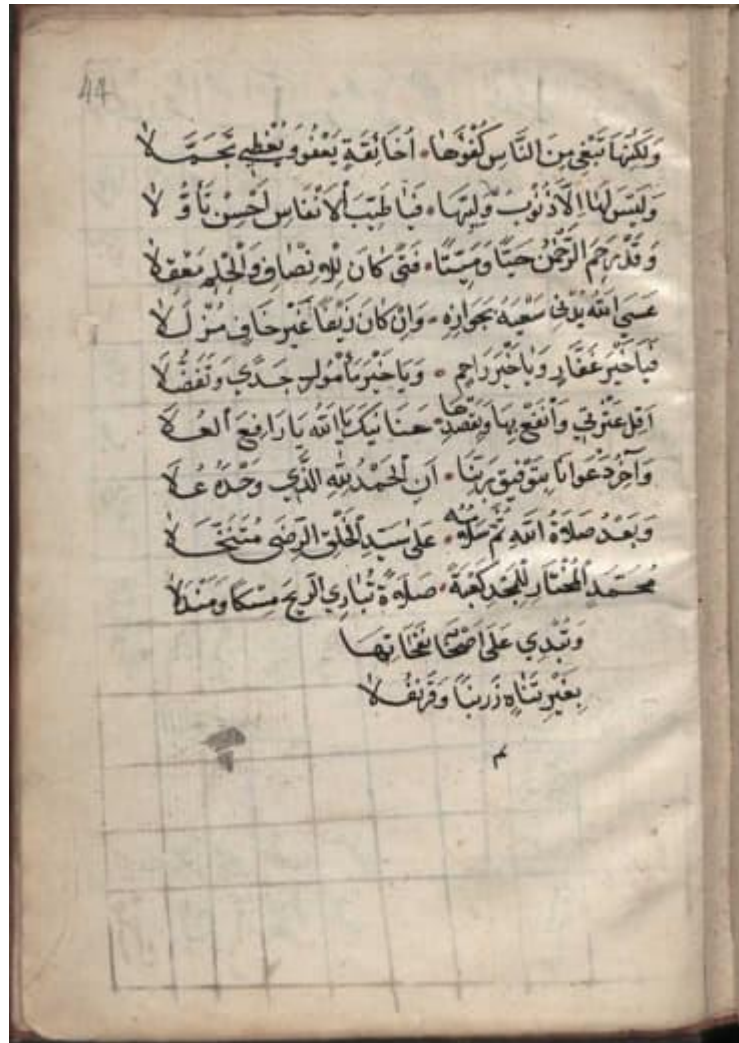 44
وَلَكِنَّهَا تَبْغِي مِنَ النَّاسِ كُفْؤَهَا ۰ أَخَا ثِقَةٍ يَعْفُو وَيُغْضِي تَجَمُّلَا
وَلَيْسَ لَهَا اِلَّا ذُنُوبُ وَلِيِّهَا ۰ فَيَا طَيِّبَ الْاَنْفَاسِ اَحْسِنْ تَأَوُّلَا
وَقُلْ رَحِمَ الرَّحْمٰنُ حَيًّا وَمَيِّتًا ۰ فَتًى كَانَ لِلْاِنْصَافِ وَالْحِلْمِ مَعْقِلَا
عَسَى اللّٰهُ يُدْنِي سَعْيَهُ بِجَوَازِهِ ۰ وَاِنْ كَانَ زَيْفًا غَيْرَ خَافٍ مُزَلَّلَا
فَيَا خَيْرَ غَفَّارٍ وَيَا خَيْرَ رَاحِمٍ ۰ وَيَا خَيْرَ مَأْمُولٍ جَدًى وَتَفَضُّلَا
اَقِلْ عَثْرَتِي وَانْفَعْ بِهَا وَبِقَصْدِهَا ۰ حَنَانَيْكَ يَا اَللّٰهُ يَا رَافِعَ الْعُلَا
وَآخِرُ دَعْوَانَا بِتَوْفِيقِ رَبِّنَا ۰ اَنِ الْحَمْدُ لِلّٰهِ الَّذِي وَحْدَهُ عَلَا
وَبَعْدُ صَلَاةُ اللّٰهِ ثُمَّ سَلَامُهُ ۰ عَلَى سَيِّدِ الْخَلْقِ الرِّضَى مُتَنَخَّلَا
مُحَمَّدٍ الْمُخْتَارِ لِلْمَجْدِ كَعْبَةً ۰ صَلَاةً تُبَارِي الرِّيحَ مِسْكًا وَمَنْدَلَا
وَتُبْدِي عَلَى اَصْحَابِهِ نَفَحَاتِهَا
بِغَيْرِ تَنَاهٍ زَرْنَبًا وَقَرَنْفُلَا
م